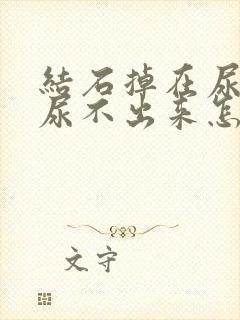 結石掉在尿
尿不出来怎
文守